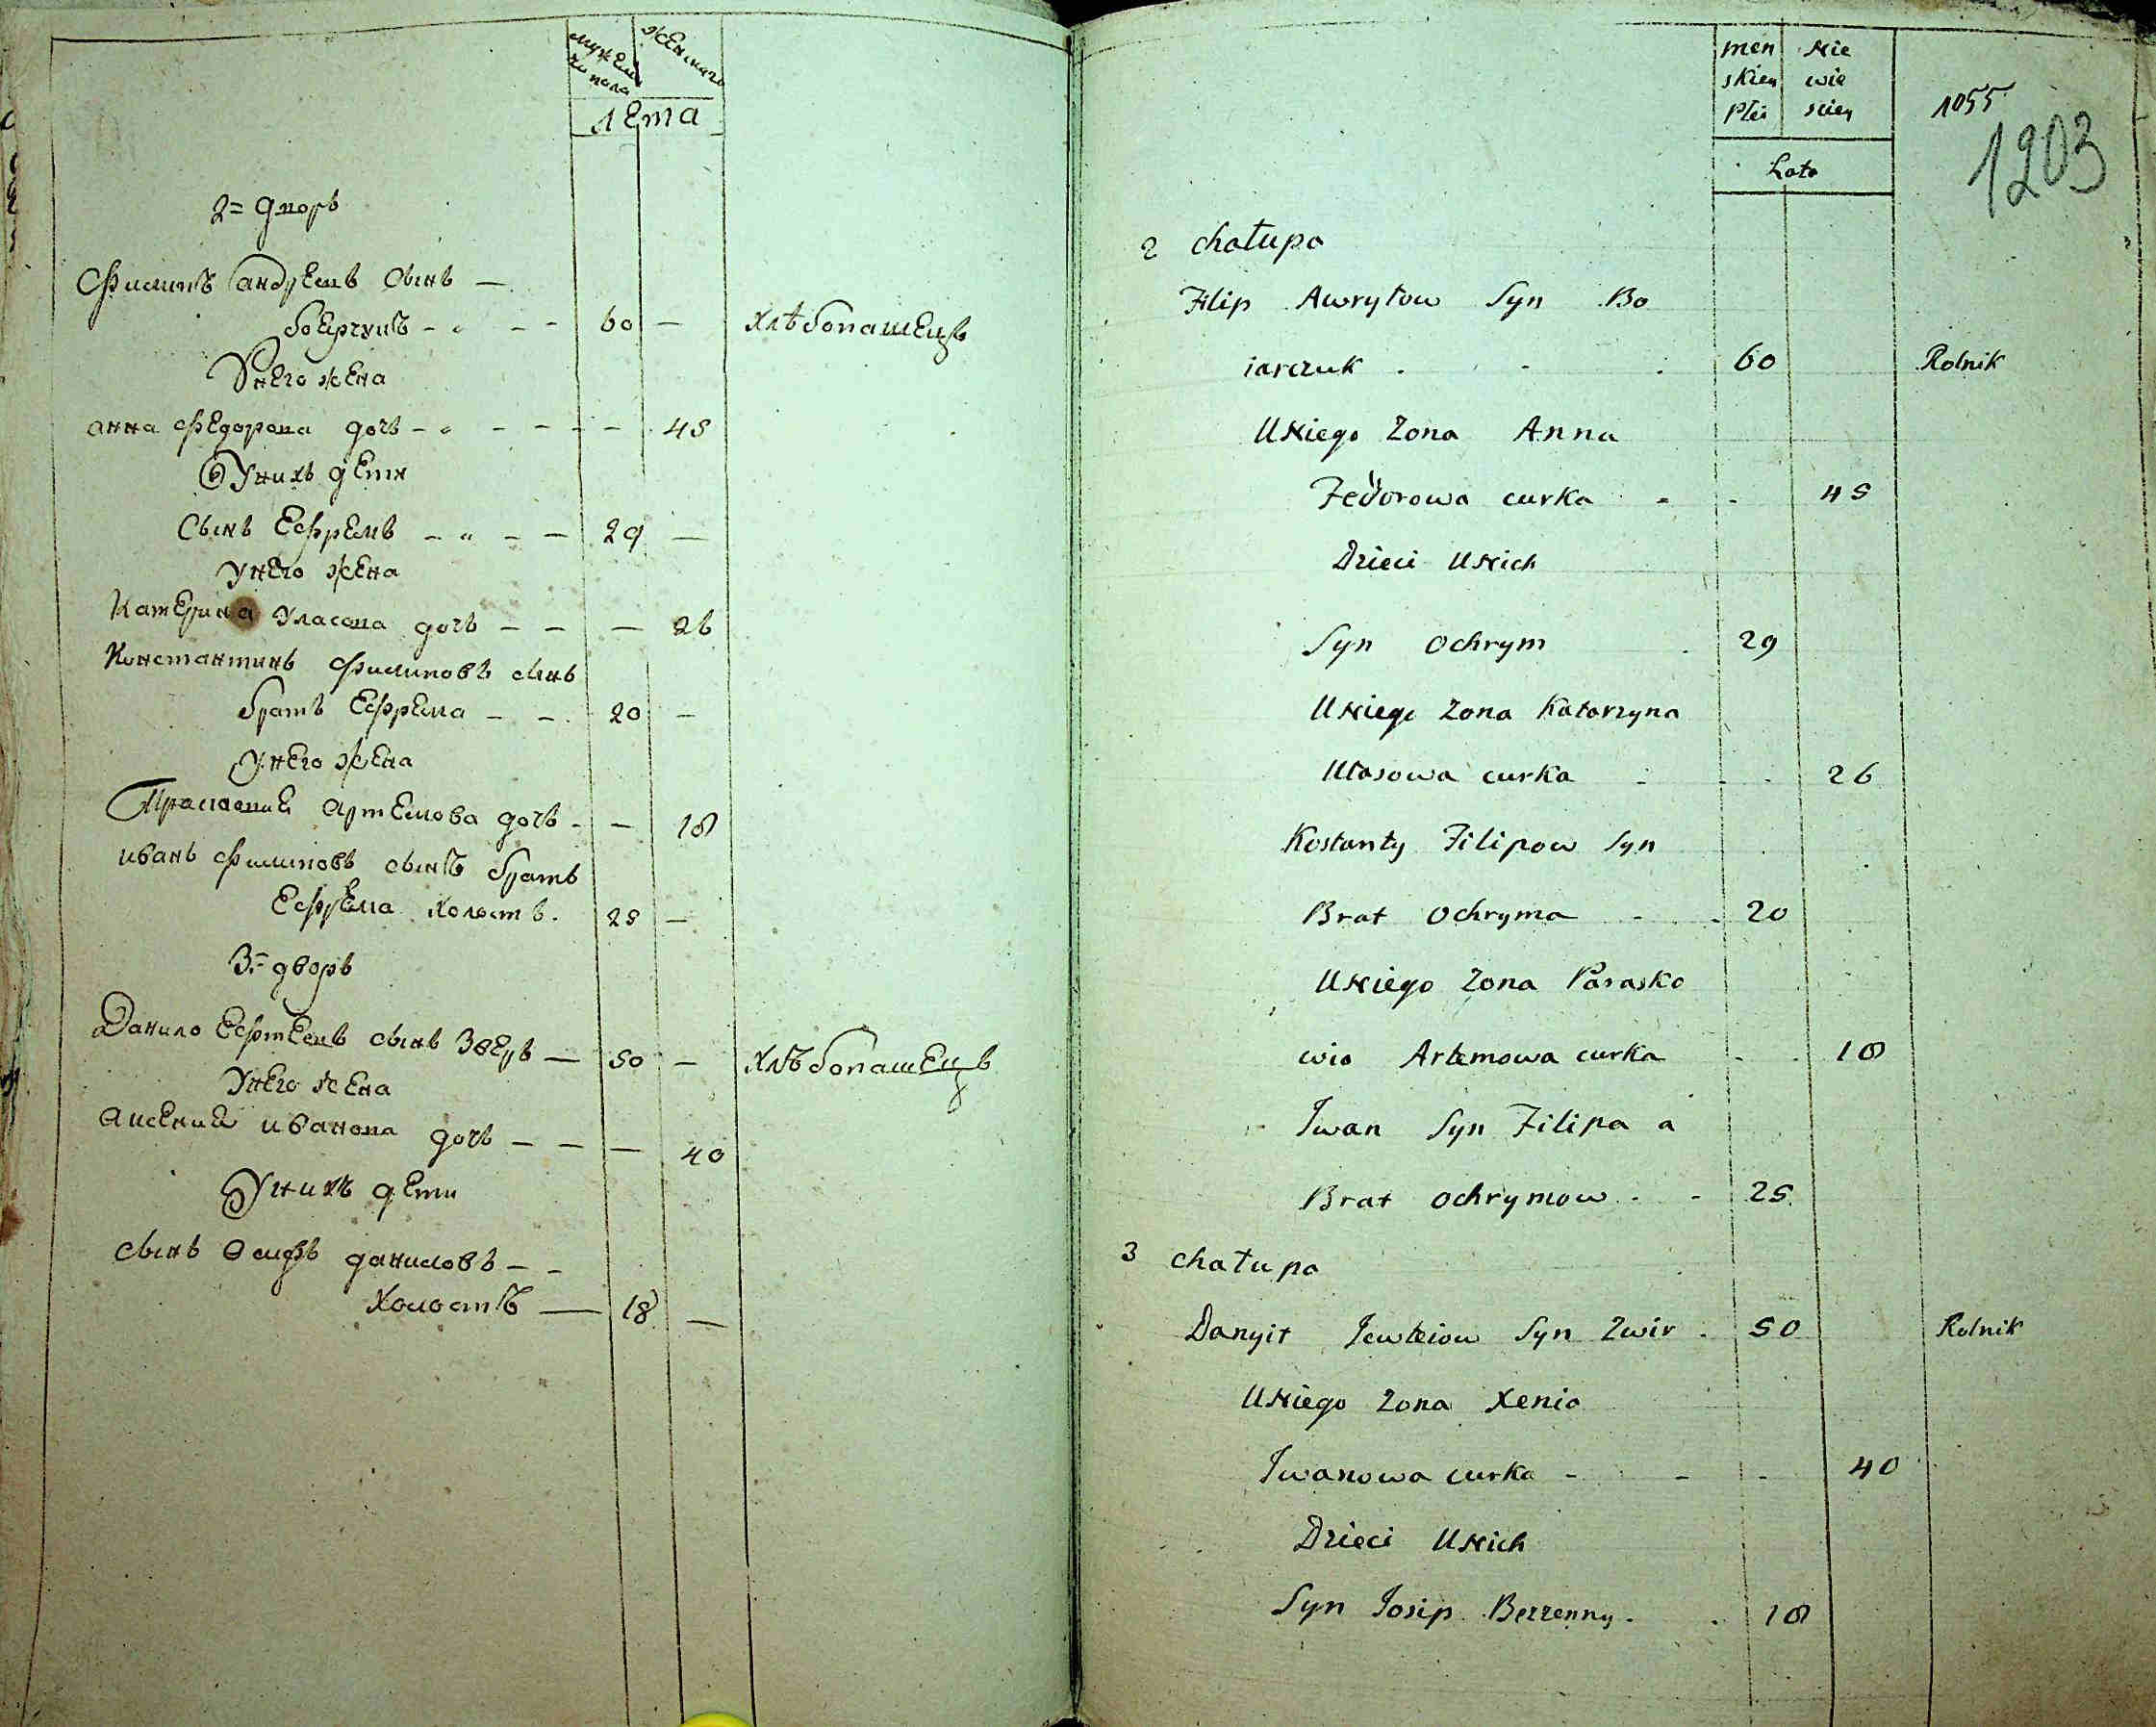 мужеска
го пола
женскаго
лета
2= дворъ
Филипъ андреевъ сынъ —
боярчукъ - - - 60 — хлѣбопашецъ
У него жена
анна федорова дочь - - - - — 45
У нихъ дети
Сынъ Ефремъ - - - 29 —
У него жена
Катерина Уласова дочь - - — 26
Константинъ Филиповъ сынъ
братъ Ефрема - - 20 —
У него жена
Прасковия Артемова дочь - — 18
иванъ Филиповъ сынъ братъ
Ефрема холостъ. 25 —
3= дворъ
Данило Ефтеевъ сынъ Зверъ — 50 — хлѣбопашецъ
У него жена
Аксения иванова дочь - - — 40
У нихъ дети
сынъ Осифъ даниловъ - -
Холостъ — 18 —
men
skiey
płci
Nie
wie
sciey
Lata
1055
1203
2 chałupa
Filip Awryłow Syn Bo
iarczuk . . . 60 Rolnik
U Niego Zona Anna
Fedorowa curka - - 45
Dzieci U Nich
Syn Ochrym . 29
U Niego Zona Katarzyna
Ułasowa curka - - 26
Kostanty Filipow Syn
Brat Ochryma - - 20
U Niego Zona Parasko
wia Artemowa curka - - 18
Jwan Syn Filipa a
Brat Ochrymow - - 25
3 chałupa
Danyił Jewteiow Syn Zwir . 50 Rolnik
U Niego Zona Xenia
Jwanowa curka - - - 40
Dzieci U Nich
Syn Josip Bezzenny - . 18